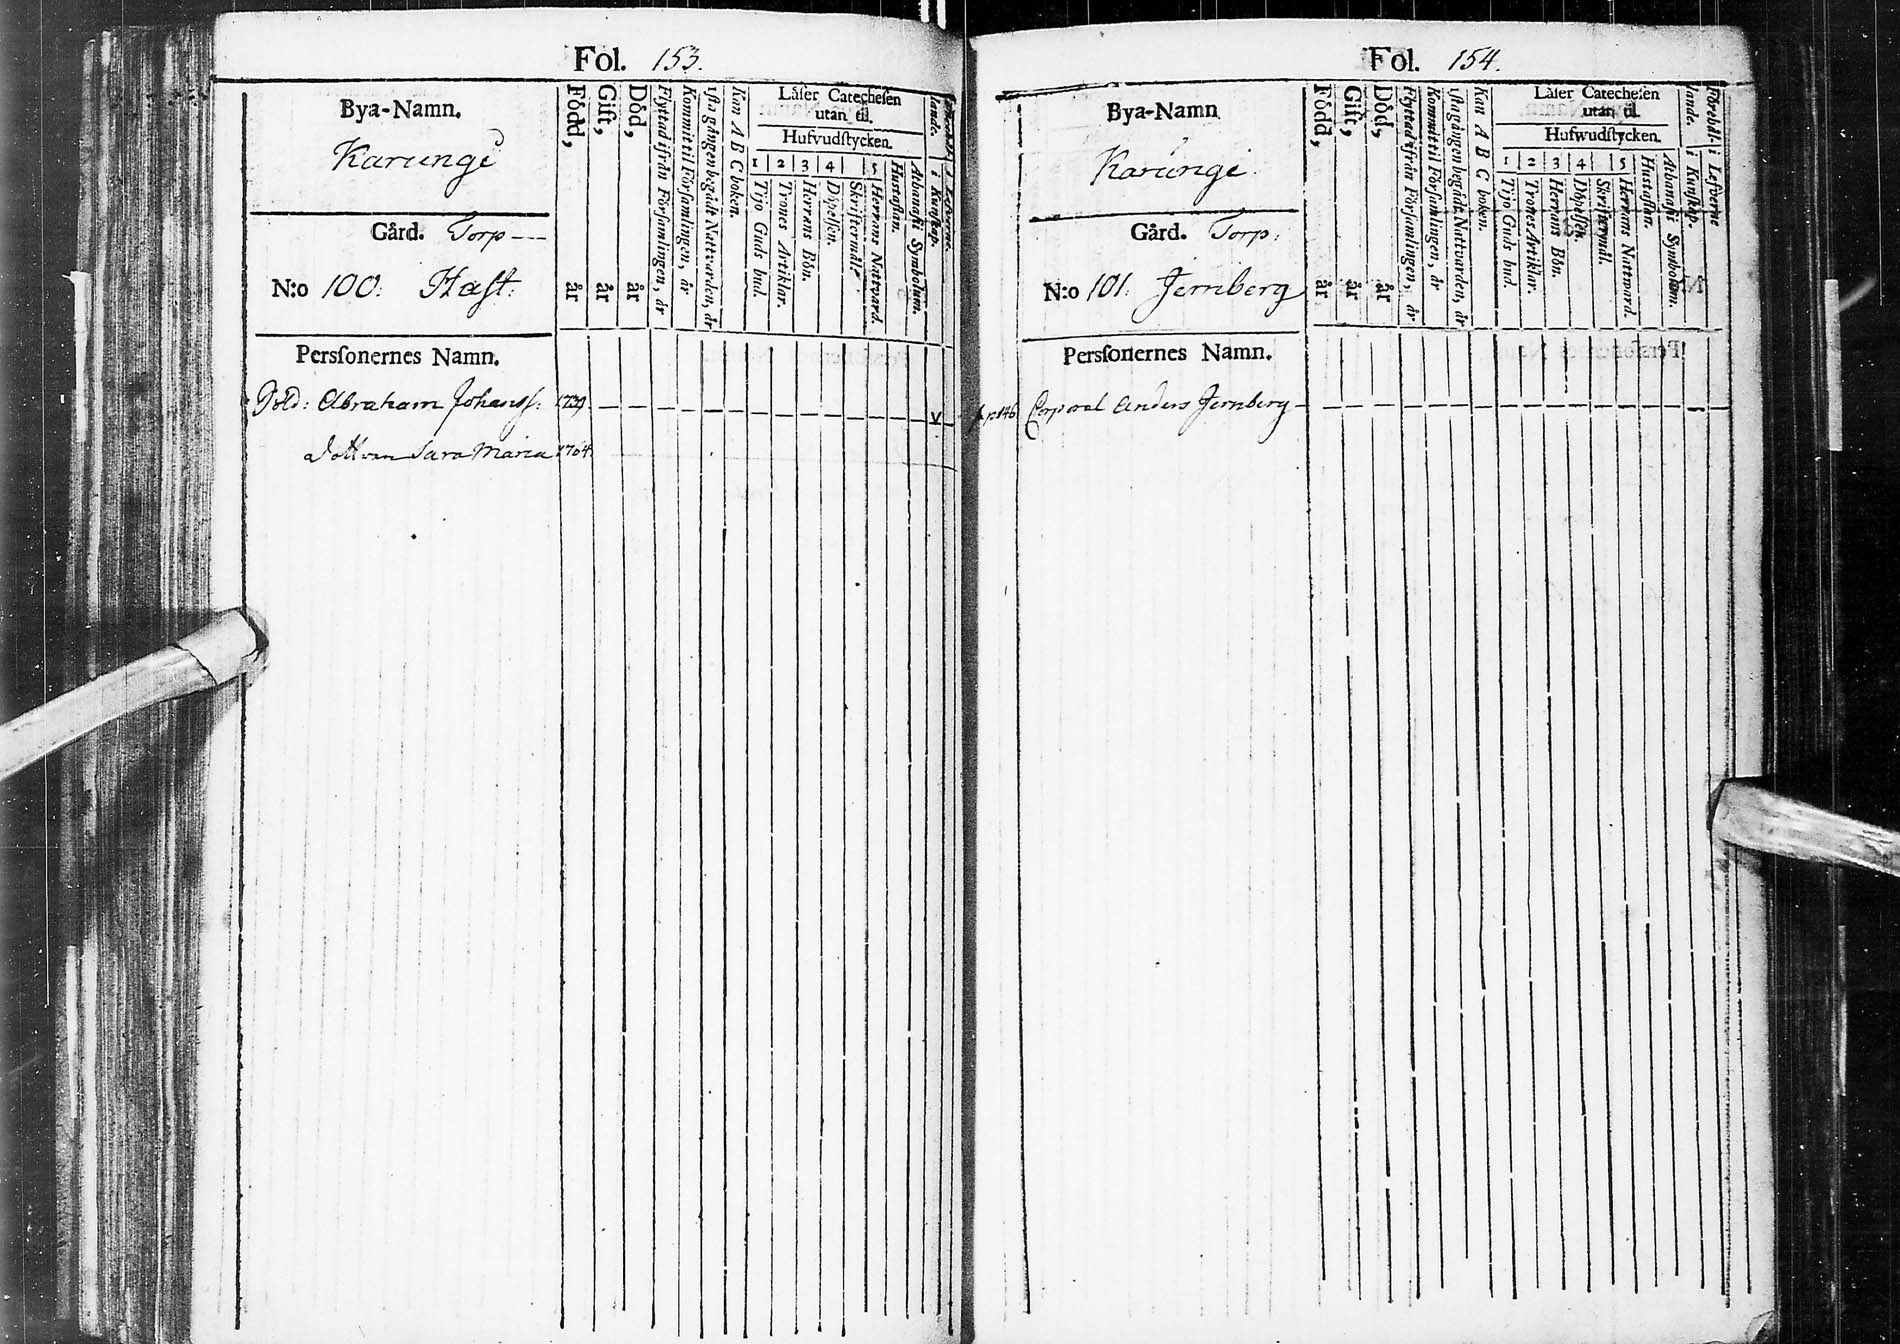 Fol. 153.
Bya-Namn.
Karungi
Gård. Torp
N:o 100: Hast:
Född, år
Gift, år
Död, år
Flyttad ifrån Församlingen, år
Kommit til Församlingen, år
1sta gången begådt Nattvarden, år
Kan A B C boken.
Läser Catechesen
utan til.
Hufvudstycken.
1 2 3 4 5
Tijo Guds bud.
Trones Artiklar.
Herrans Bön.
Döpelsen.
Skriftermål.
Herrans Nattvard.
Hustaflan.
Athanasii Symbolum.
i Kunskap.
i Lefverne.
Persſonernes Namn.
Sold: Abraham Johansſ:
v
dottren Sara Maria 1764.
Fol. 154.
Bya-Namn
Karungi
Gård. Torp.
N:o 101. Jernberg
Född, år
Gift, år
Död, år
Flyttad ifrån Församlingen, år
Kommit til Församlingen, år
1sta gången begådt Nattvarden, år
Kan A B C boken.
Läser Catechesen
utan til.
Hufwudstycken.
1 2 3 4 5
Tijo Guds bud.
Trones Artiklar.
Herrans Bön.
Döpelsen.
Skriftermål.
Herrans Nattward.
Hustaflan.
Athanasii Symbolum.
Förehållande. i Kunskap.
i Lefverne
Persſonernes Namn.
Corporal Anders Jernberg